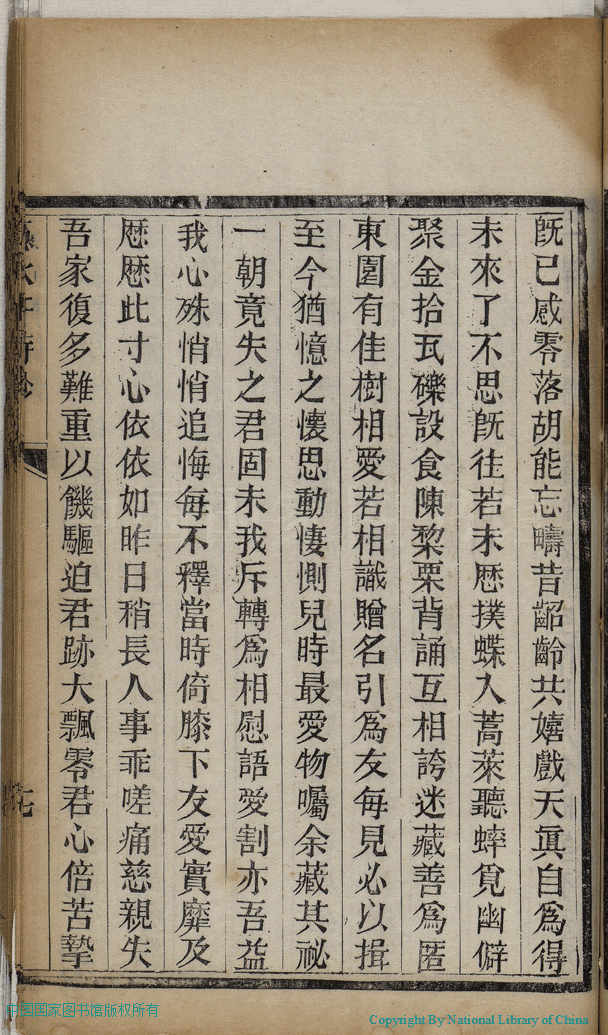 既已感零落胡能忘疇昔齠齡共嬉戲天眞自爲得
未來了不思旣往若未歷撲蝶入蒿萊聽蟀覓幽僻
聚金拾瓦礫設食陳棃栗背誦互相誇迷藏善爲匿
東園有佳樹相愛若相識贈名引爲友每見必以揖
至今猶憶之懷思動悽惻兒時最愛物囑余藏其祕
一朝竟失之君固未我斥轉爲相慰語愛割亦吾益
我心殊悄悄追悔每不釋當時倚膝下友愛實靡及
歷歷此寸心依依如昨日稍長人事乖嗟痛慈親失
吾家復多難重以饑驅迫君跡大飄零君心倍苦摯
中国国家图书馆版权所有
Copyright By National Library of China